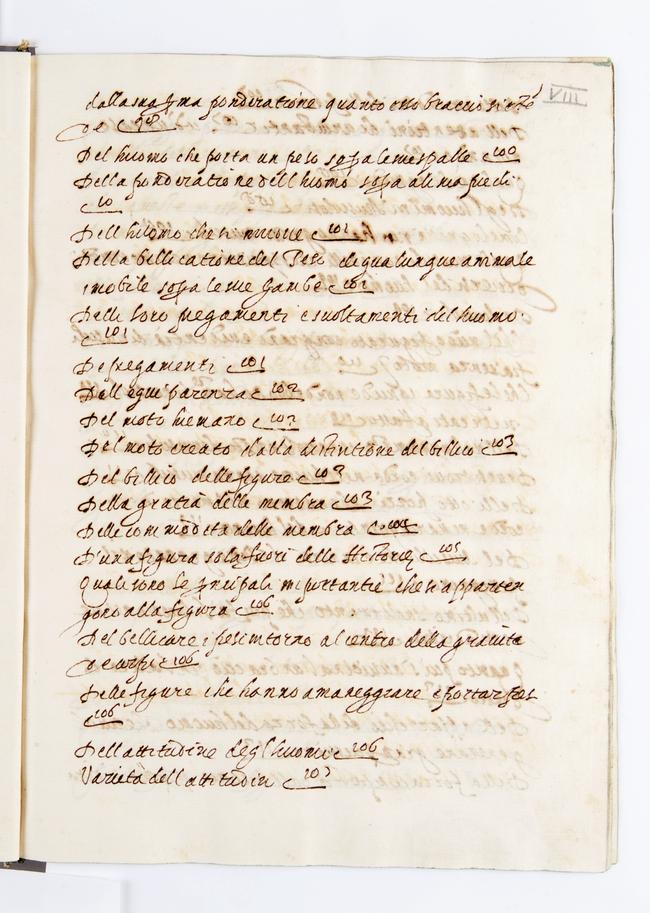 VIII
dalla sua pma ponderatione quanto esso braccio si este
de c 98
Del huomo che porta un peso sopa le sue spalle c 100
Della ponderatione dell huomo sopa ali ma piedi
c 10
Dell huomo che si muove c 101
Della billicatione del Peso di qualunque animale
imobile sopa le sue Gambe c 101
Delli loro piegamenti e suoltamenti del huomo
c 101
De piegamenti c 101
Dell equiparenza c 102
Del moto humano c 102
Del moto creato dalla distrutione del billico c 103
Del billico delle figure c 103
Della gratia delle membra c 103
Delle commodita delle membra c 104
D'una figura sola fuori delle Historie c 105
Quali sono le principali importantie che s'apparten
gono alla figura c 106
Del bellicare i pesi intorno al centro della gravita
de corpi c 106
Delle figure che hanno a maneggiare e portar pesi
c 106
Dell attitudine degl'huomini c 106
Varietà dell attitudin c 107